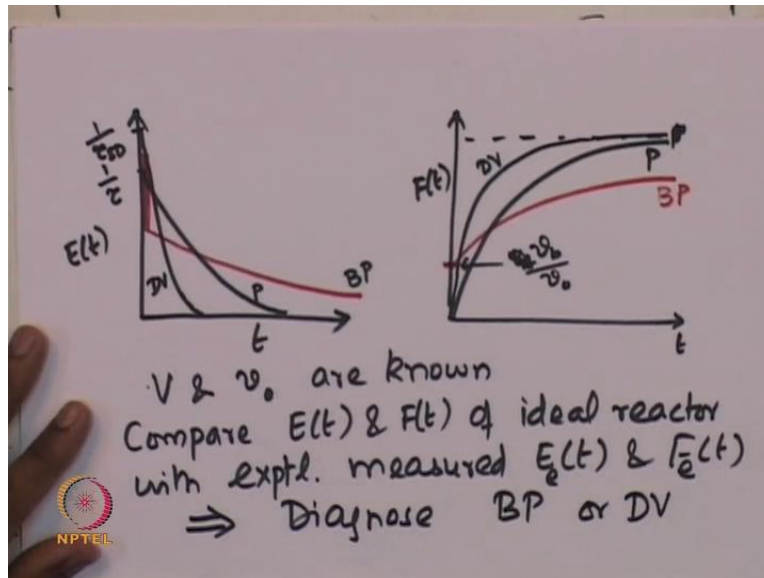 1/τ_SD
1/τ
E(t)
DV
P
BP
t
F(t)
DV
P
P
BP
v_b/v_0
t
V & v_0 are known
Compare E(t) & F(t) of ideal reactor
with exptl. measured E_e(t) & F_e(t)
⇒ Diagnose BP or DV
NPTEL